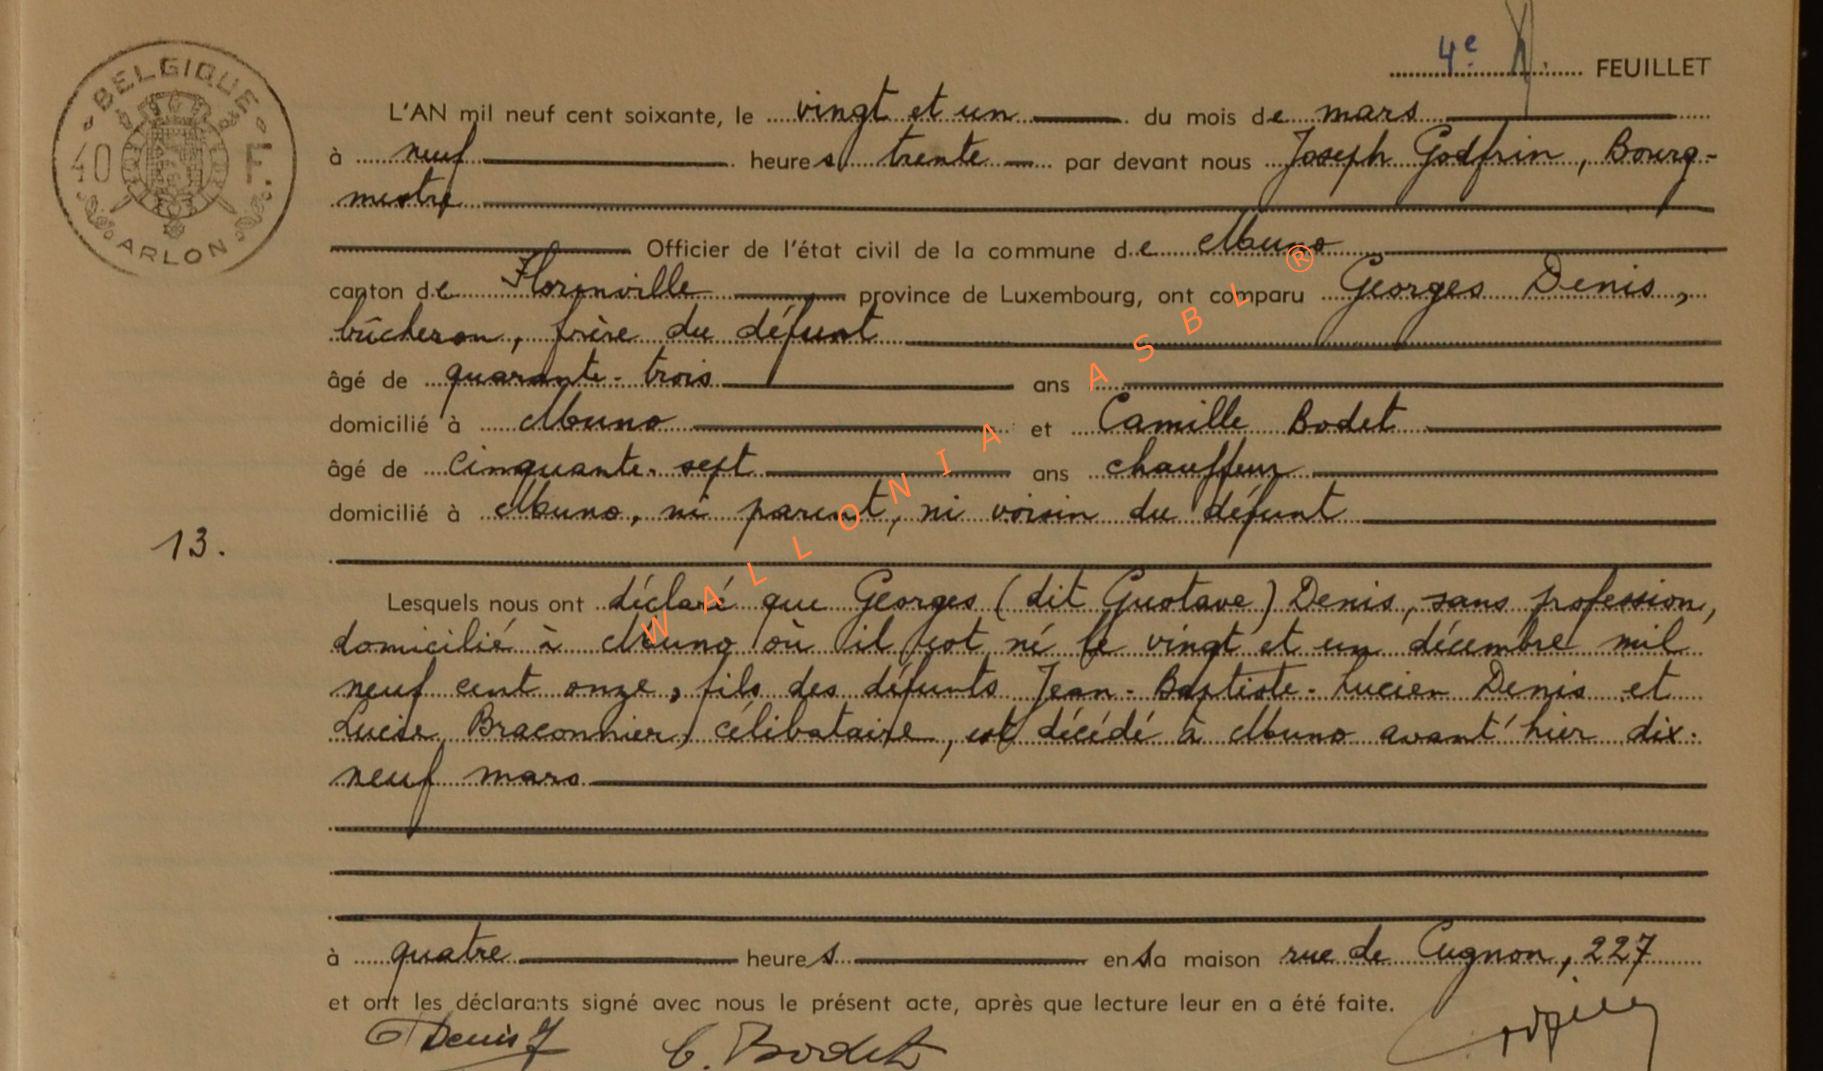 4e FEUILLET
BELGIQUE
40 F.
ARLON
L'AN mil neuf cent soixante, le vingt et un du mois de mars
à neuf heures trente par devant nous Joseph Godfrin, Bourg-
mestre
Officier de l'état civil de la commune de Muno
canton de Florenville province de Luxembourg, ont comparu Georges Denis,
bûcheron, frère du défunt
âgé de quarante-trois ans
domicilié à Muno et Camille Bodet
âgé de cinquante-sept ans chauffeur
domicilié à Muno, ni parent, ni voisin du défunt
13.
Lesquels nous ont déclaré que Georges (dit Gustave) Denis, sans profession,
domicilié à Muno où il est né le vingt et un décembre mil
neuf cent onze, fils des défunts Jean-Baptiste-Lucien Denis et
Lucie Braconnier, célibataire, est décédé à Muno avant'hier dix-
neuf mars
à quatre heures en sa maison rue de Cugnon, 227
et ont les déclarants signé avec nous le présent acte, après que lecture leur en a été faite.
Denis C. Bodet
WALLONIA ASBL ®